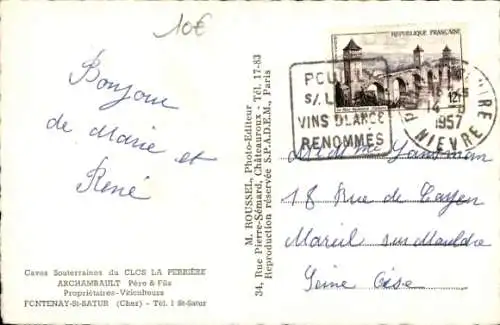 10€
Bonjour
de Marie et
René
Caves Souterraines du CLOS LA PERRIÈRE
ARCHAMBAULT Père & Fils
Propriétaires-Viticulteurs
FONTENAY-St-SATUR (Cher) - Tél. 1 St-Satur
M. ROUSSEL, Photo-Editeur
34, Rue Pierre-Sémard, Châteauroux - Tél. 17-83
Reproduction réservée S.P.A.D.E.M., Paris
RÉPUBLIQUE FRANÇAISE
12F
POUILLY
S/. L
VINS BLANCS
RENOMMÉS
1957
NIEVRE
18 Rue de
Mareil sur Mauldre
Seine Oise